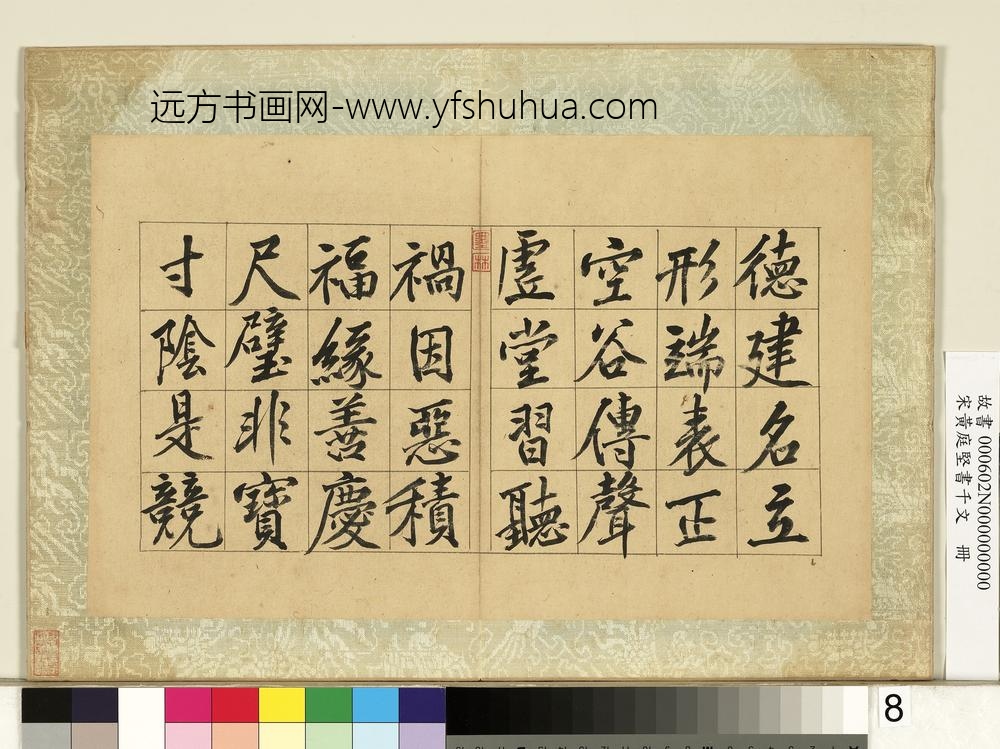 远方书画网-www.yfshuhua.com
德建名立
形端表正
空谷傳聲
虛堂習聽
禍因惡積
福緣善慶
尺璧非寶
寸陰是競
故書 000602N000000000
宋黃庭堅書千文 冊
8